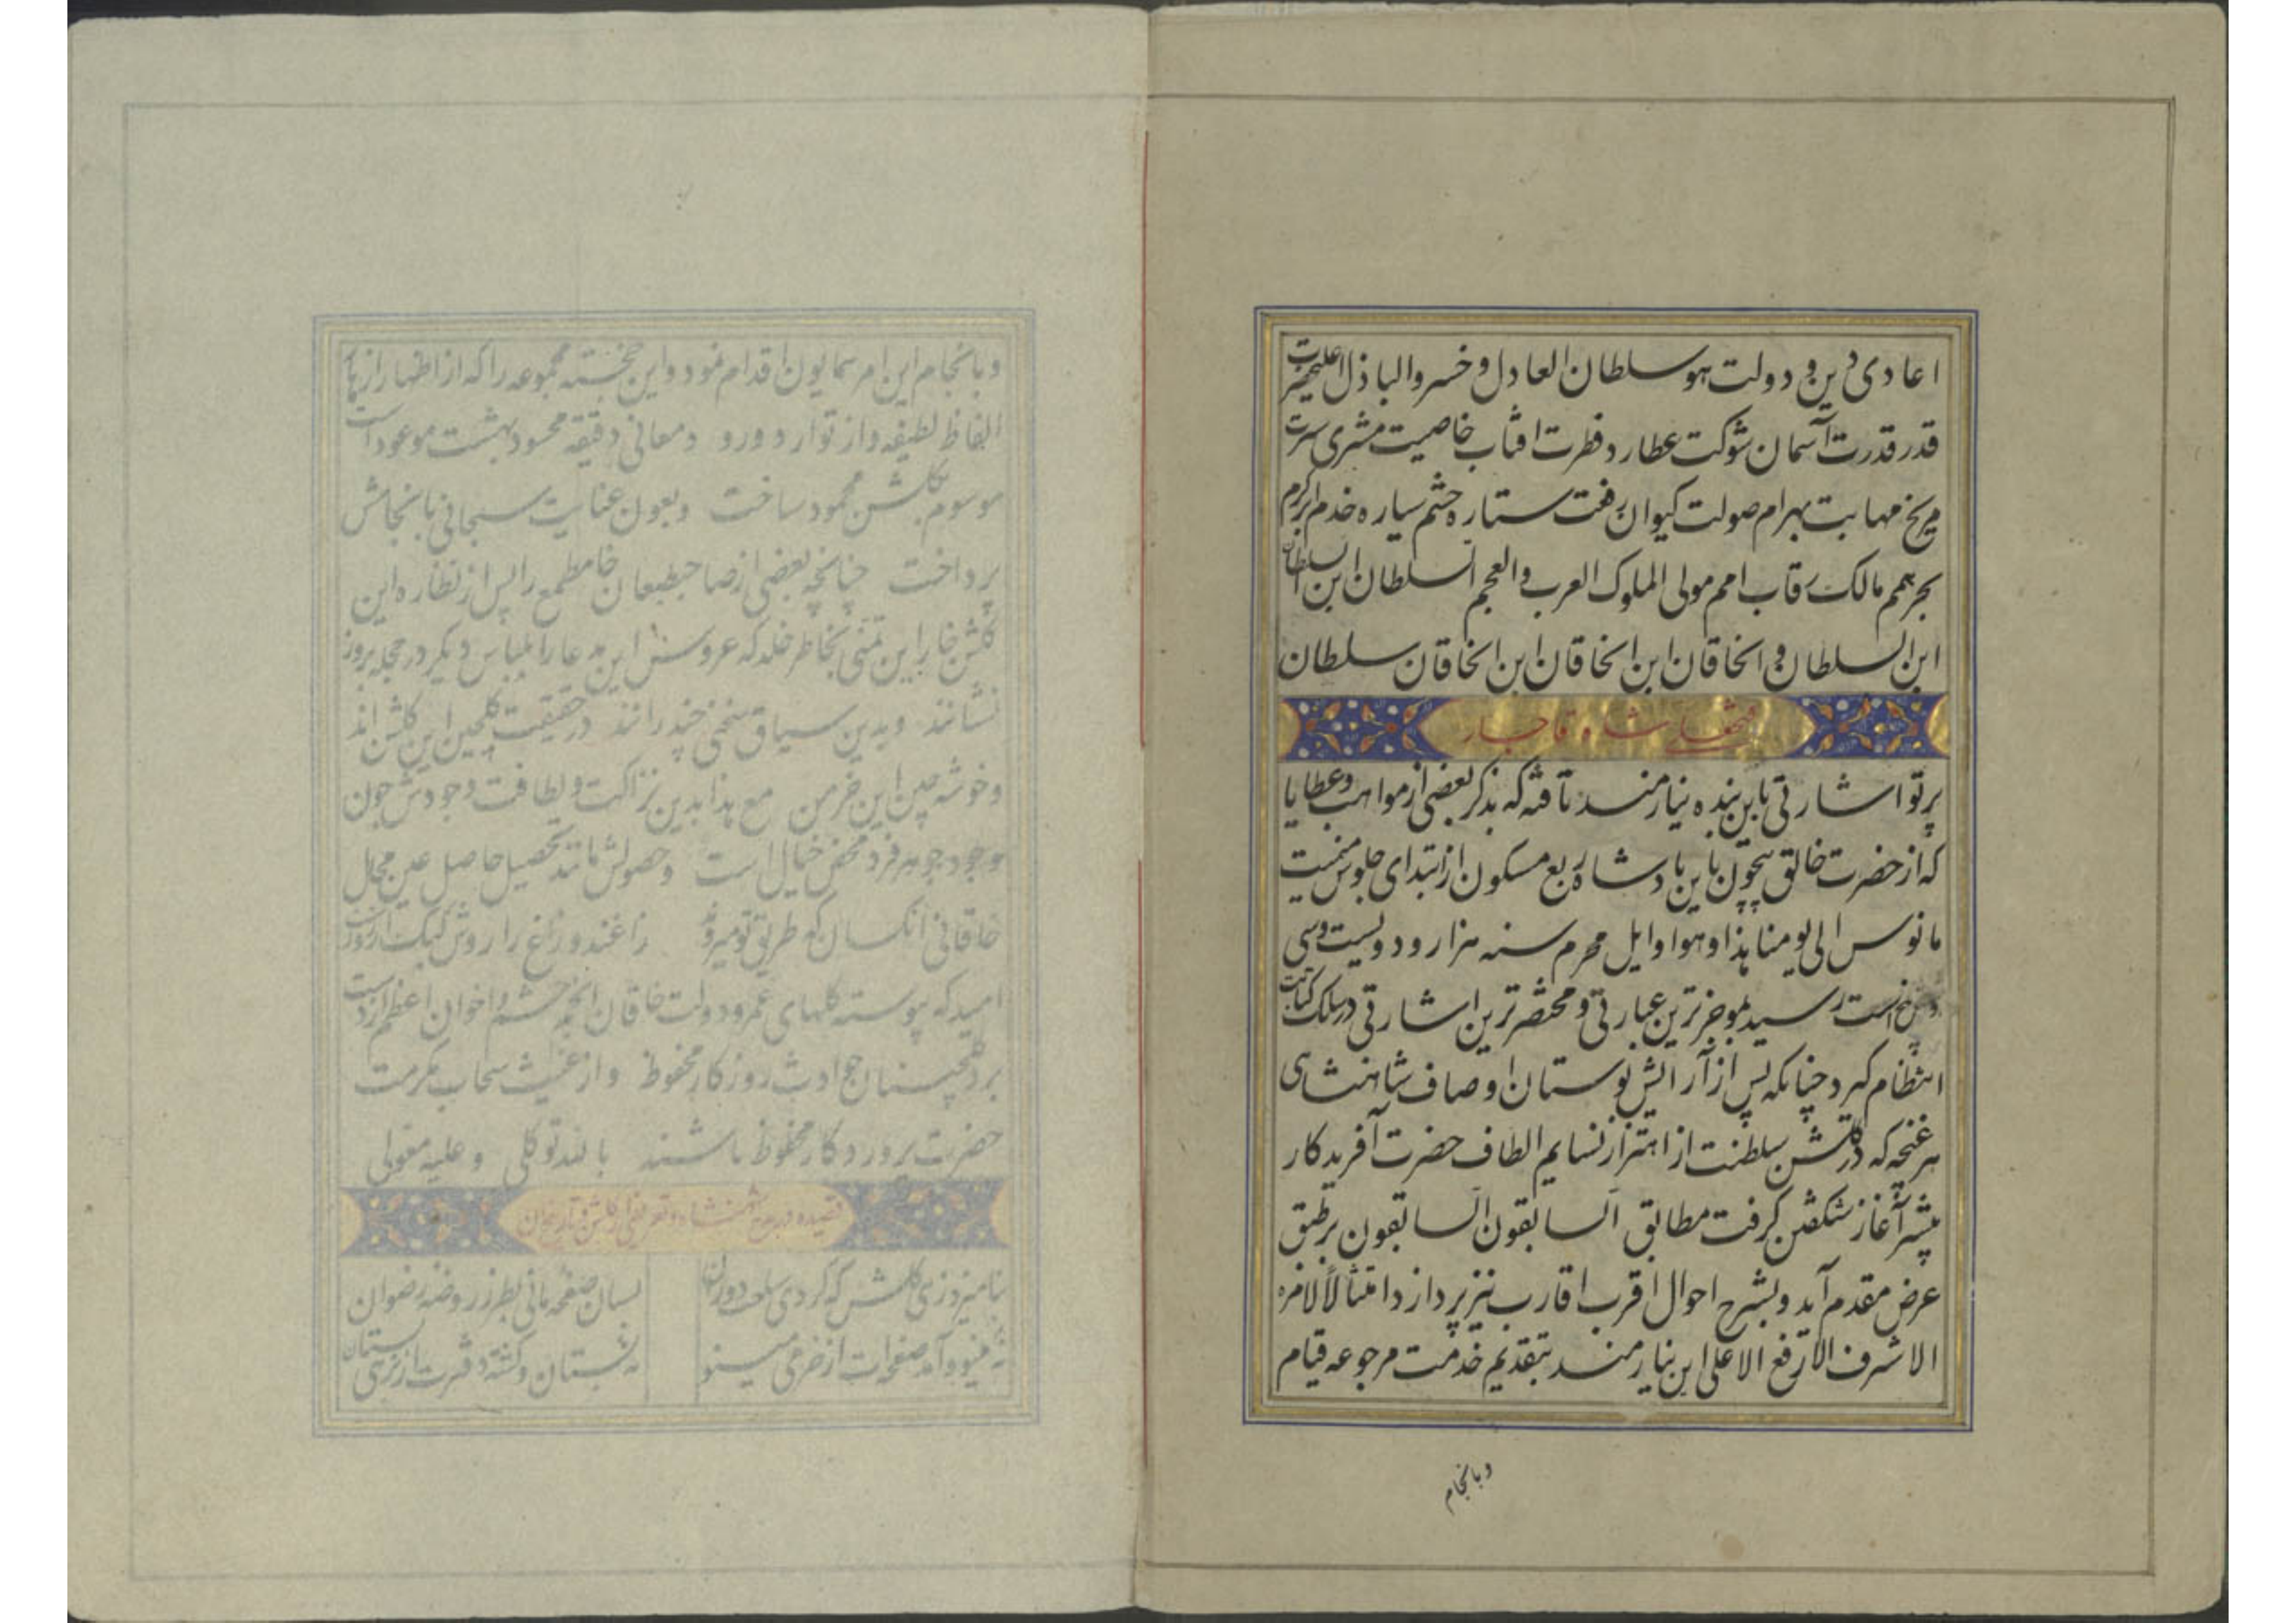 اعادی دین و دولت هو سلطان العادل و خسرو الباذل اعلیحضرت
قدر قدرت آسمان شوکت عطارد فطرت افتاب خاصیت مشتری سیرت
مریخ مهابت بهرام صولت کیوان رفعت ستاره حشم سیاره خدم ابر کرم
بحر همم مالک رقاب امم مولی الملوک العرب والعجم السلطان ابن السلطان
ابن السلطان و الخاقان ابن الخاقان ابن الخاقان سلطان
فتحعلی شاه قاجار
پرتو اشارتی باین بنده نیازمند تافته که بذکر بعضی از مواهب و عطایا
که از حضرت خالق بیچون باین پادشاه ربع مسکون از ابتدای جلوس میمنت
مانوس الی یومنا هذا و هو اوایل محرم سنه هزار و دویست و سی
است رسید بموجزترین عبارتی و مختصرترین اشارتی در سلک کتابت
انتظام گیرد چنانکه پس از آرایش بوستان اوصاف شاهنشاهی
هر غنچه که در گلشن سلطنت از اهتزاز نسایم الطاف حضرت آفریدکار
پیشتر آغاز شکفتن گرفت مطابق السابقون السابقون بر طبق
عرض مقدم آید و بشرح احوال اقرب اقارب نیز پردازد امتثالاً لامره
الاشرف الارفع الاعلی این نیازمند بتقدیم خدمت مرجوعه قیام
و بانجام
و بانجام این امر همایون اقدام نمود و این خجسته مجموعه را که از اظهار ازهار
الفاظ لطیفه و از توارد ورود معانی دقیقه محسود بهشت موعود است
موسوم بگلشن محمود ساخت و بعون عنایت سبحانی بانجامش
پرداخت چنانچه بعضی از صاحبطبعان خام طمع را پس از نظاره این
گلشن خار این تمنی بخاطر خلد که عروس این مدعا را بلباس دیگر در حجله بروز
نشانند و بدین سیاق سخنی چند رانند در حقیقت گلچین این گلشن اند
و خوشه چین این خرمن مع هذا بدین نزاکت و لطافت وجودش چون
وجود جوهر فرد محض خیال است و حصولش مانند تحصیل حاصل عین محال
خاقانی آنکسان که طریق تو میروند زاغند و زاغ را روش کبک آرزوست
امید که پیوسته گلهای عمر و دولت خاقان انجم حشم و اخوان اعظم از دست
برد گلچینان حوادث روزگار محفوظ و از غیث سحاب مکرمت
حضرت پروردگار محظوظ باشند بالله توکلی و علیه معولی
قصیده در مدح شاهنشاه و تعریف این گلشن و تاریخ آن
بنامیزد زهی گلشن که کردی دوران بسان صفحه مانی بطرز روضه رضوان
مینو و آمد صفحه ات از خرمی مینو